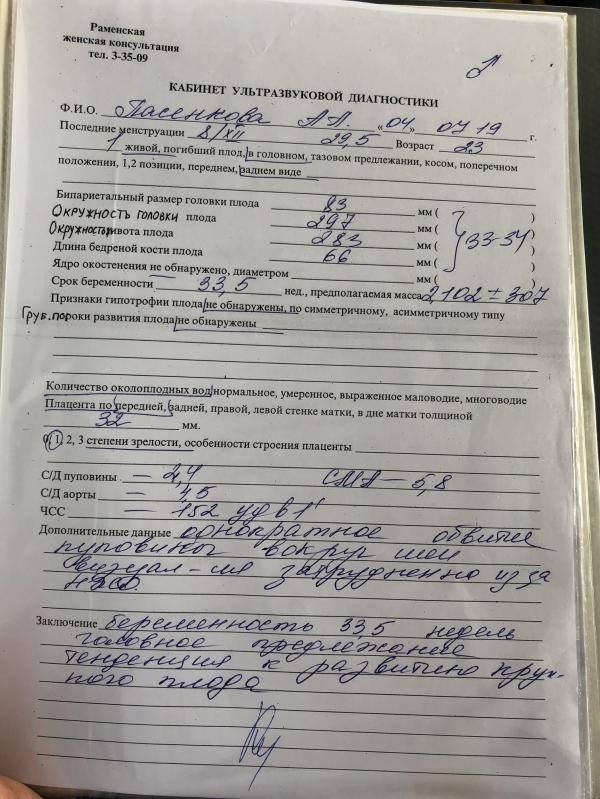 Раменская
женская консультация
тел. 3-35-09
КАБИНЕТ УЛЬТРАЗВУКОВОЙ ДИАГНОСТИКИ
Ф.И.О. Пасенкова А.П. «04» 07 19 г.
Последние менструации 8/XII 29,5 Возраст 23
1 живой, погибший плод, в головном, тазовом предлежании, косом, поперечном
положении, 1,2 позиции, переднем, заднем виде
Бипариетальный размер головки плода 83 мм ( )
ОКРУЖНОСТЬ ГОЛОВКИ плода 297 мм ( )
ОКРУЖНОСТЬ живота плода 283 мм ( ) 33-34
Длина бедреной кости плода 66 мм ( )
Ядро окостенения не обнаружено, диаметром мм ( )
Срок беременности 33,5 нед., предполагаемая масса 2102 ± 307
Признаки гипотрофии плода не обнаружены, по симметричному, асимметричному типу
Груб. пороки развития плода не обнаружены
Количество околоплодных вод нормальное, умеренное, выраженное маловодие, многоводие
Плацента по передней, задней, правой, левой стенке матки, в дне матки толщиной
32 мм.
0, 1, 2, 3 степени зрелости, особенности строения плаценты
С/Д пуповины — 2,4 СМА — 5,8
С/Д аорты — 4,5
ЧСС — 152 уд в 1'
Дополнительные данные однократное обвитие
пуповины вокруг шеи
визуал-ия затруднена из за
Заключение беременность 33,5 недель
головное предлежание
тенденция к развитию круп-
ного плода